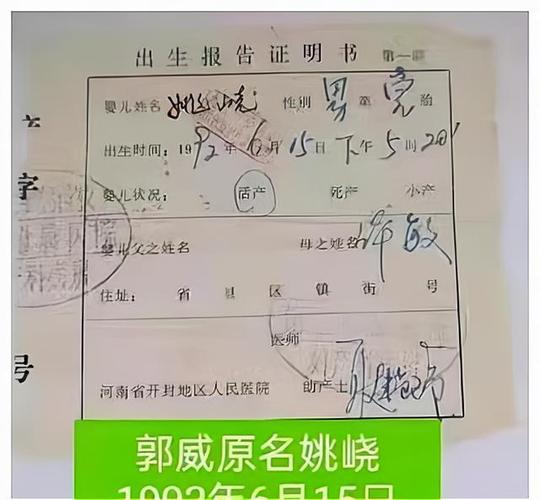 出生报告证明书 第一联
婴儿姓名 姚峣 性别 男 童 完 胎
出生时间：1992年6月15日下午5时20'
婴儿状况： 活产 死产 小产
婴儿父之姓名 母之姓名 许敏
住址： 省 县 区 镇 街 号
医师
河南省开封地区人民医院 助产士
字
号
郭威原名姚峣
1992年6月15日